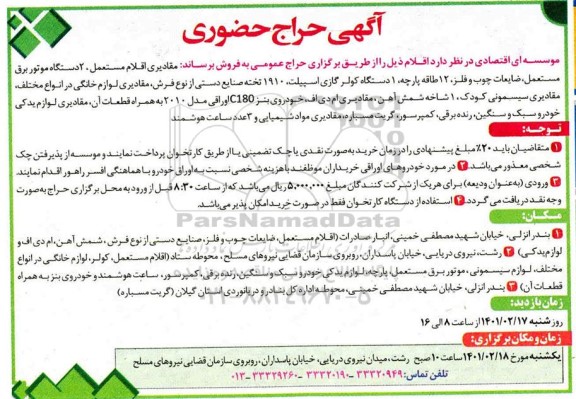 آگهی حراج حضوری
موسسه ای اقتصادی در نظر دارد اقلام ذیل را از طریق برگزاری حراج عمومی به فروش برساند: مقادیری اقلام مستعمل، ۲دستگاه موتور برق
مستعمل، ضایعات چوب و فلز، ۱۲طاقه پارچه، ۱دستگاه کولر گازی اسپیلت، ۱۹۱۰ تخته صنایع دستی از نوع فرش، مقادیری لوازم خانگی در انواع مختلف،
مقادیری سیسمونی کودک، ۱شاخه شمش آهن، مقادیری ام دی اف، خودروی بنز C180اوراقی مدل ۲۰۱۰ به همراه قطعات آن، مقادیری لوازم یدکی
خودرو سبک و سنگین، رنده برقی، کمپرسور، گریت مسباره، مقادیری مواد شیمیایی و ۳عدد ساعت هوشمند
توجه:
۱ متقاضیان باید ۲۰٪مبلغ پیشنهادی را در زمان خرید به صورت نقدی یا چک تضمینی یا از طریق کارتخوان پرداخت نمایند و موسسه از پذیرفتن چک
شخصی معذور می‌باشد. ۲ در مورد خودروهای اوراقی خریداران موظفند با هزینه شخصی نسبت به اوراق خودرو با هماهنگی افسر راهور اقدام نمایند.
۳ ورودی (به عنوان ودیعه) برای هریک از شرکت کنندگان مبلغ ۵,۰۰۰,۰۰۰ ریال می‌باشد که از ساعت ۸:۳۰ قبل از ورود به محل برگزاری حراج به صورت
وجه نقد دریافت می گردد. ۴ استفاده از دستگاه کارتخوان فقط در صورت خرید امکان پذیر می‌باشد.
مکان:
۱ بندر انزلی، خیابان شهید مصطفی خمینی، انبار صادرات (اقلام مستعمل، ضایعات چوب و فلز، صنایع دستی از نوع فرش، شمش آهن، ام دی اف و
لوازم یدکی) ۲ رشت، نیروی دریایی، خیابان پاسداران، روبروی سازمان قضایی نیروهای مسلح، محوطه ستاد (اقلام مستعمل، کولر، لوازم خانگی در انواع
مختلف، لوازم سیسمونی، موتور برق مستعمل، پارچه، لوازم یدکی خودرو سبک و سنگین، رنده برقی، کمپرسور، ساعت هوشمند و خودروی بنز به همراه
قطعات آن) ۳ بندر انزلی، خیابان شهید مصطفی خمینی، محوطه اداره کل بنادر و دریانوردی استان گیلان (گریت مسباره)
زمان بازدید:
روز شنبه ۱۴۰۱/۰۲/۱۷ از ساعت ۸ الی ۱۶
زمان و مکان برگزاری:
یکشنبه مورخ ۱۴۰۱/۰۲/۱۸ ساعت ۱۰ صبح رشت، میدان نیروی دریایی، خیابان پاسداران، روبروی سازمان قضایی نیروهای مسلح
تلفن تماس: ۳۳۳۲۰۹۴۹ - ۳۳۳۲۰۱۹۰ - ۳۳۳۲۹۲۶۰ - ۰۱۳
ParsNamadData